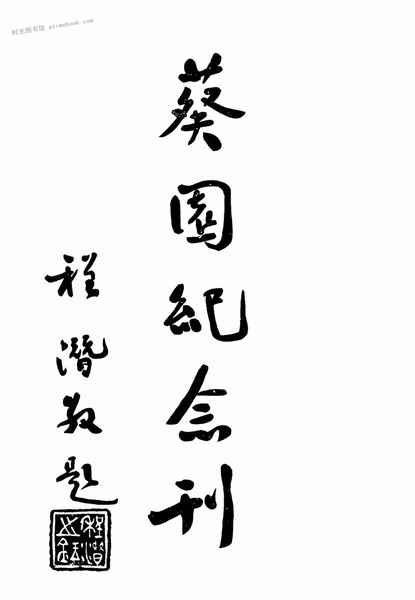 时光图书馆
葵園紀念刊
程潛敬題
程潛之鉩